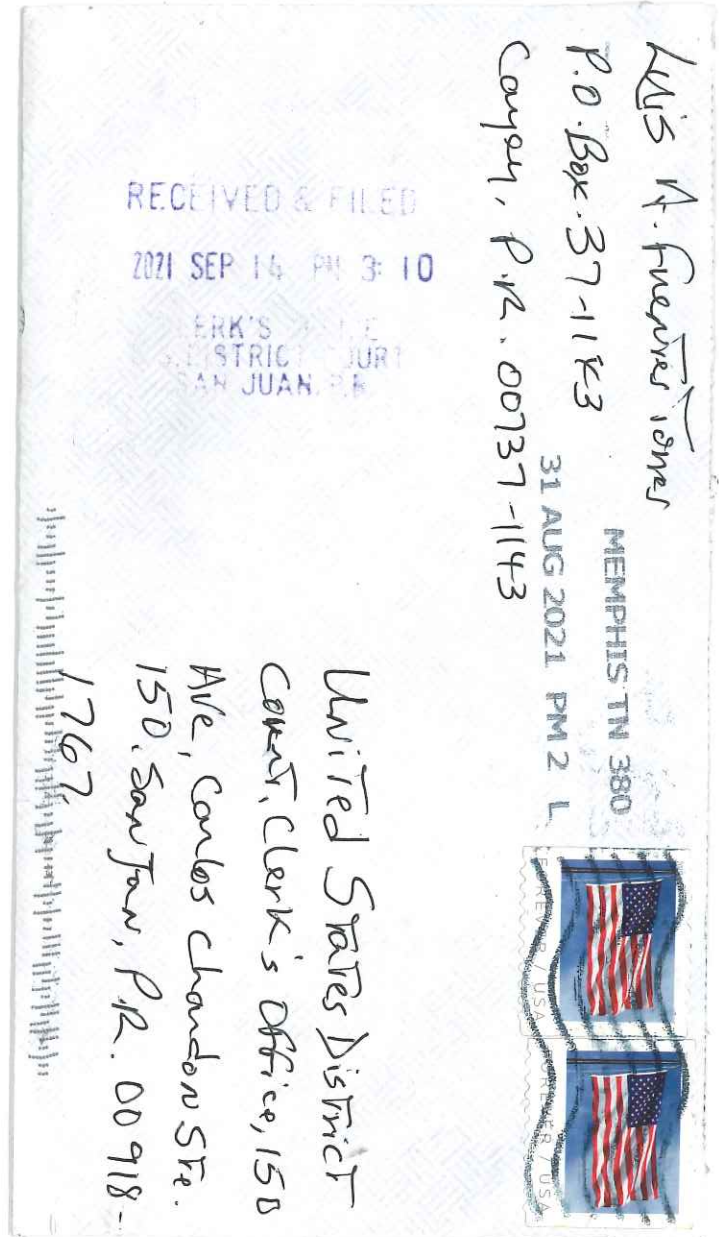 Luis A. Fuentes Torres
P.O. Box. 37-1143
Cayey, P.R. 00737-1143
MEMPHIS TN 380
31 AUG 2021 PM 2 L
FOREVER / USA
FOREVER / USA
RECEIVED & FILED
2021 SEP 14 PM 3:10
CLERK'S OFFICE
U.S. DISTRICT COURT
SAN JUAN, P.R.
United States District
Court, Clerk's Office, 150
Ave, Carlos Chardon Ste.
150, San Juan, P.R. 00918-
1767,